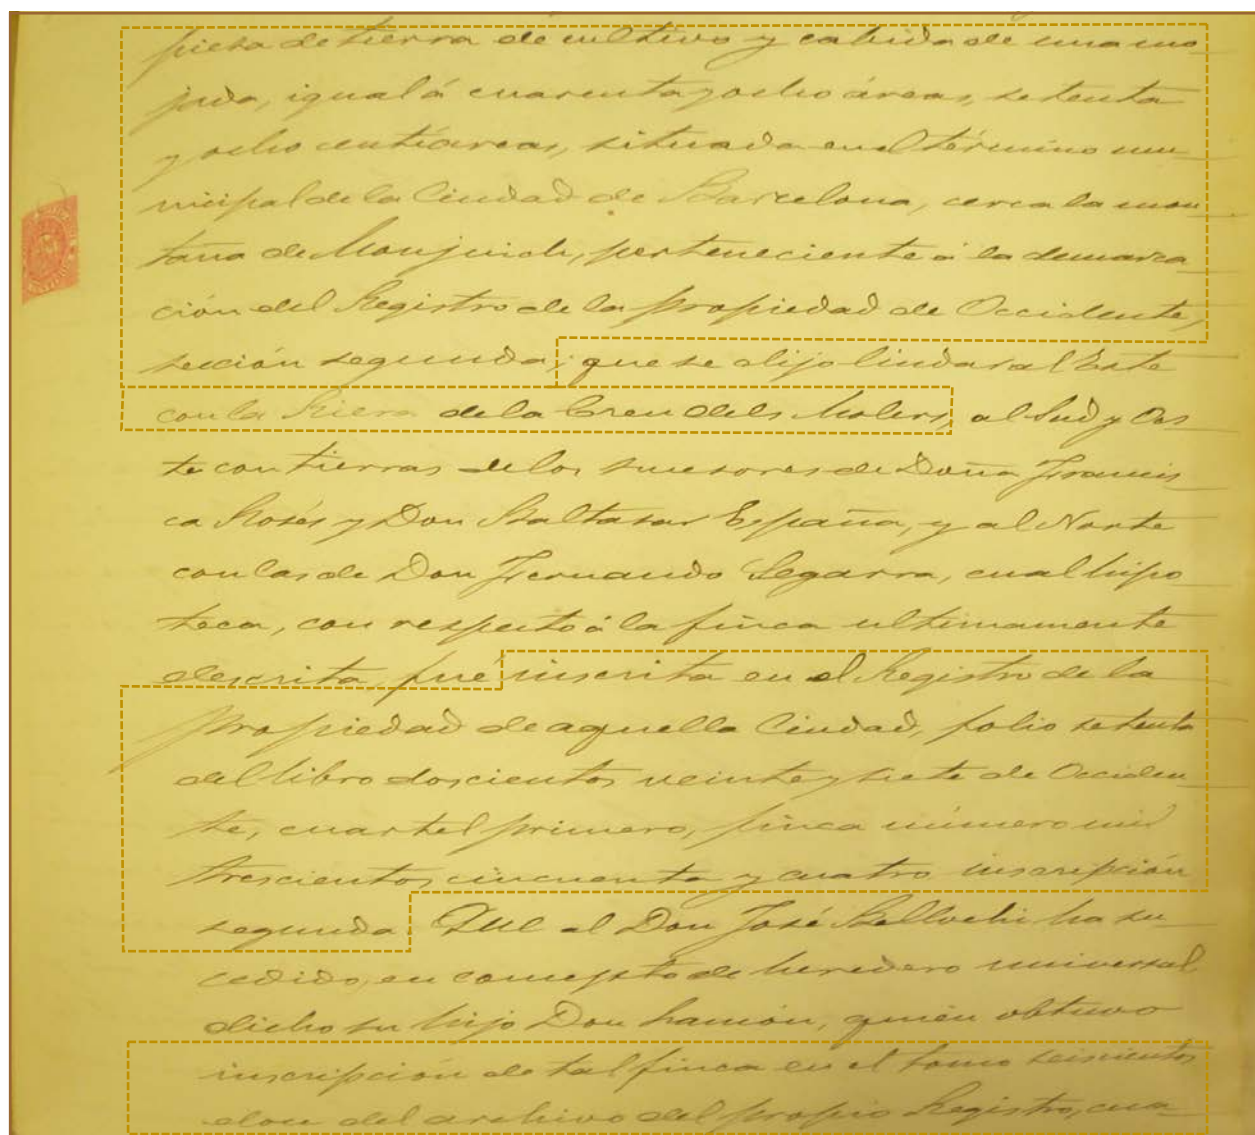 pieza de tierra de cultivo y cabida de una mo
jada, igual á cuarenta y ocho áreas, setenta
y ocho centiáreas, situada en el término mu
nicipal de la Ciudad de Barcelona, cerca la mon
taña de Monjuich, perteneciente á la demarca
ción del Registro de la propiedad de Occidente,
sección segunda; que se dijo lindar al Este
con la Riera de la Creu dels Molers, al Sud y Oes
te con tierras de los sucesores de Doña Francis
ca Rosés y Don Baltasar España, y al Norte
con las de Don Fernando Segarra, cual hipo
teca, con respecto á la finca ultimamente
descrita, fué inscrita en el Registro de la
propiedad de aquella Ciudad, folio setenta
del libro doscientos veinte y siete de Occiden
te, cuartel primero, finca número mil
trescientos cincuenta y cuatro inscripción
segunda. Que al Don José Bellvehi ha su
cedido, en concepto de heredero universal
dicho su hijo Don Ramón, quién obtuvo
inscripción de tal finca en el tomo seiscientos
doce del archivo del propio Registro, cua